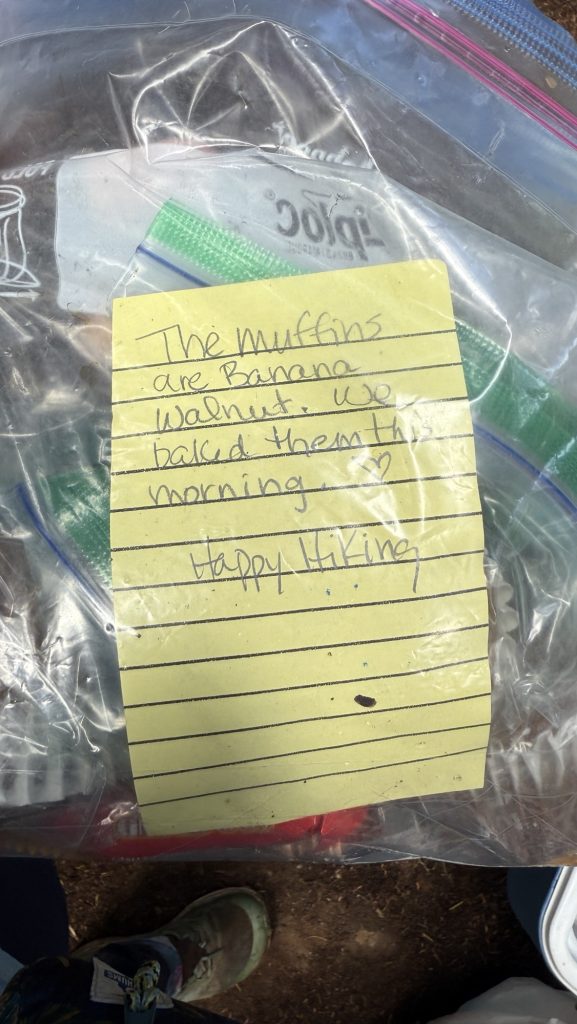 ziploc®
The muffins
are Banana
Walnut. We
baked them this
morning. ♡
Happy Hiking